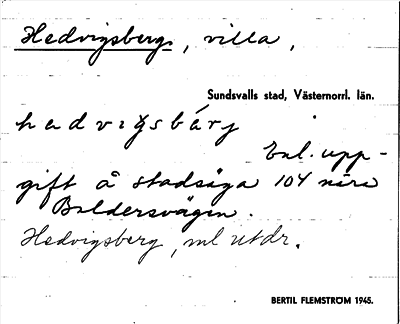 Hedvigsberg, villa,
Sundsvalls stad, Västernorrl. län.
hedvigsbärj
Enl. upp-
gift å stadsäga 104 nära
Baldersvägen.
Hedvigsberg, ml utdr.
BERTIL FLEMSTRÖM 1945.